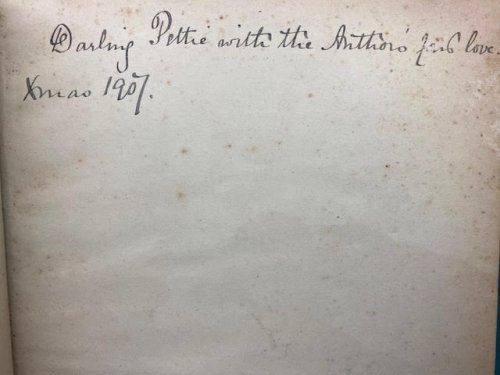 Darling Pettie with the Author's love.
Xmas 1907.